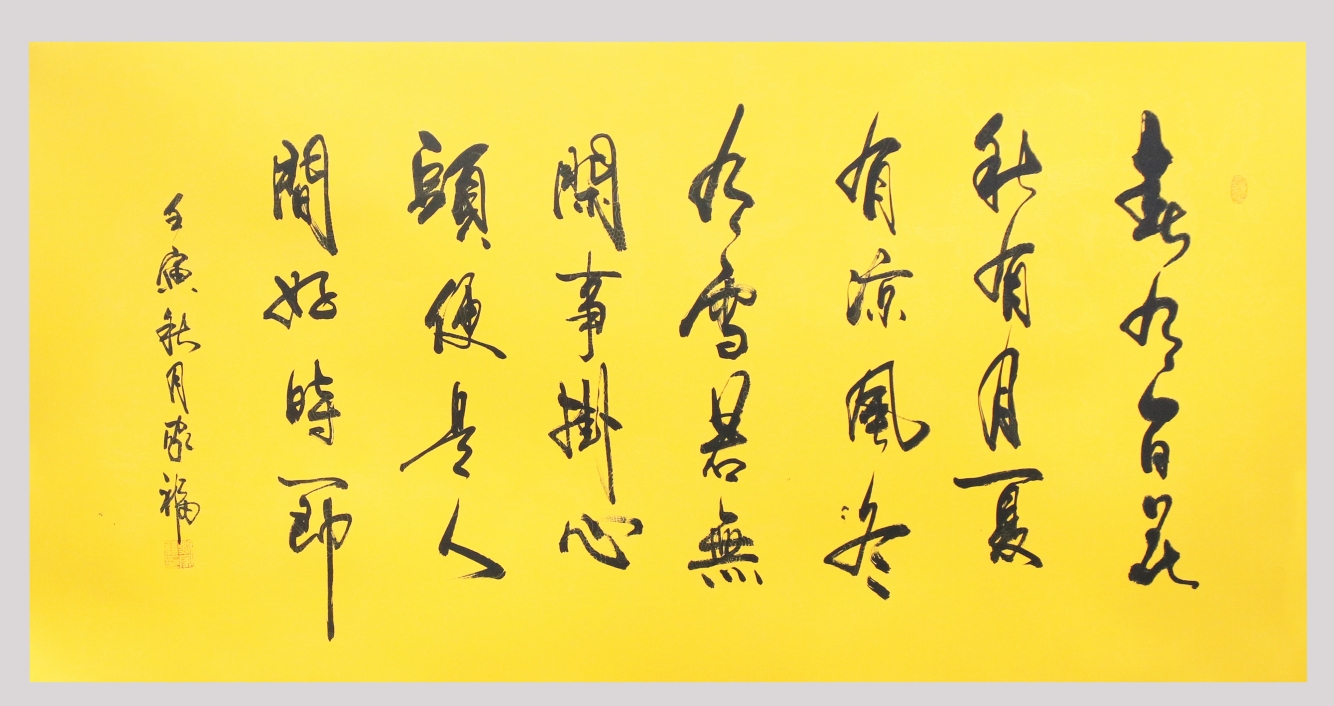 春有百花
秋有月夏
有涼風冬
有雪若無
閑事掛心
頭便是人
間好時節
壬寅秋月家福